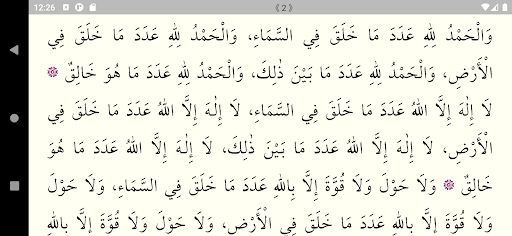 12:26
《 2 》
وَالْحَمْدُ لِلّٰهِ عَدَدَ مَا خَلَقَ فِي السَّمَاءِ، وَالْحَمْدُ لِلّٰهِ عَدَدَ مَا خَلَقَ فِي
الْأَرْضِ، وَالْحَمْدُ لِلّٰهِ عَدَدَ مَا بَيْنَ ذٰلِكَ، وَالْحَمْدُ لِلّٰهِ عَدَدَ مَا هُوَ خَالِقٌ ۞
لَا إِلٰهَ إِلَّا اللّٰهُ عَدَدَ مَا خَلَقَ فِي السَّمَاءِ، لَا إِلٰهَ إِلَّا اللّٰهُ عَدَدَ مَا خَلَقَ فِي
الْأَرْضِ، لَا إِلٰهَ إِلَّا اللّٰهُ عَدَدَ مَا بَيْنَ ذٰلِكَ، لَا إِلٰهَ إِلَّا اللّٰهُ عَدَدَ مَا هُوَ
خَالِقٌ ۞ وَلَا حَوْلَ وَلَا قُوَّةَ إِلَّا بِاللّٰهِ عَدَدَ مَا خَلَقَ فِي السَّمَاءِ، وَلَا حَوْلَ
وَلَا قُوَّةَ إِلَّا بِاللّٰهِ عَدَدَ مَا خَلَقَ فِي الْأَرْضِ، وَلَا حَوْلَ وَلَا قُوَّةَ إِلَّا بِاللّٰهِ